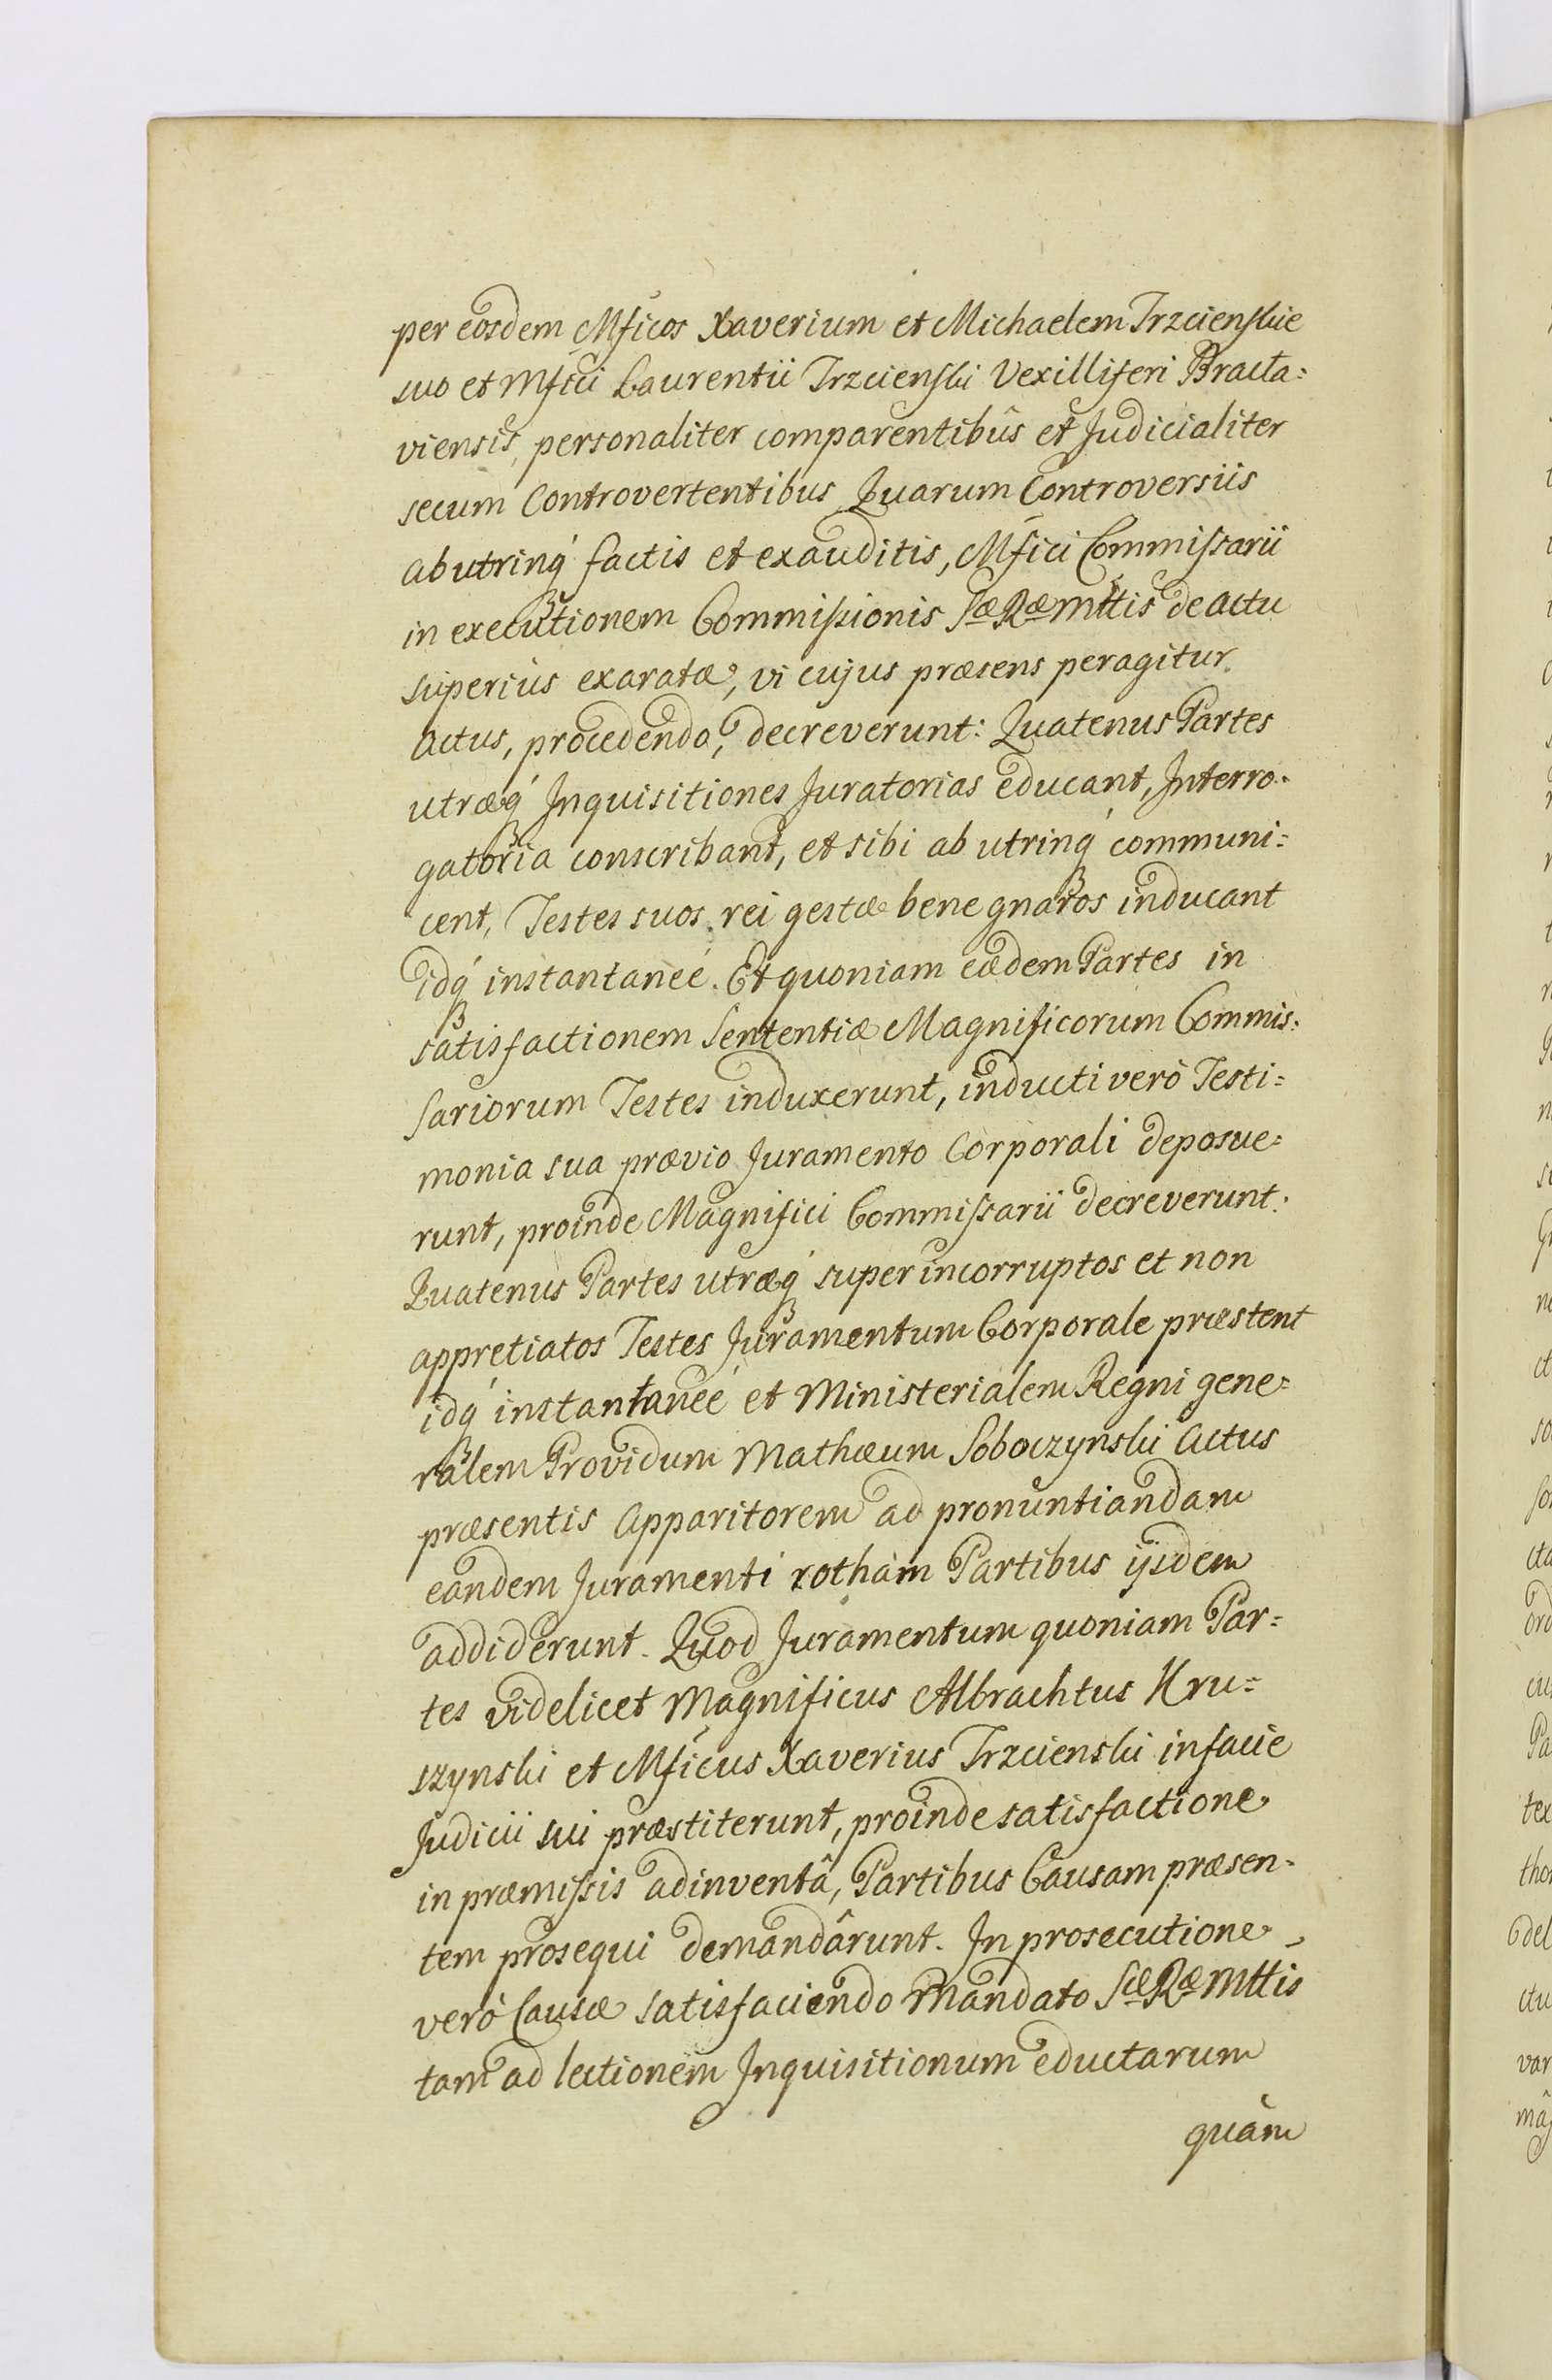 per eosdem Mficos Xaverium et Michaelem Trzcienskie
suo et Mfici Laurentii Trzcienski Vexilliferi Bracla=
viensis, personaliter comparentibûs et Judicialiter
secum Controvertentibus, Quarum Controversiis
ab utrinq́ factis et exauditis, Mfici Commissarii
in executionem Commissionis Sæ Ræ Mttis de actu
superiùs exaratæ, vi cujus præsens peragitur
Actus, procedendo, decreverunt: Quatenus Partes
utræq́ Inquisitiones Juratorias educant, Interro=
gatoria conscribant, et sibi ab utrinq́ communi=
cent, Testes suos rei gestæ bene gnaros inducant
idq́ instantaneé. Et quoniam eædem Partes in
satisfactionem Sententiæ Magnificorum Commis=
sariorum Testes induxerunt, inducti verò Testi=
monia sua prævio Juramento Corporali deposue=
runt, proinde Magnifici Commissarii decreverunt:
Quatenus Partes utræq́ super incorruptos et non
appretiatos Testes Juramentum Corporale præstent
idq́ instantaneé et Ministerialem Regni gene=
ralem Providum Mathæum Soboczynski Actus
præsentis Apparitorem ad pronuntiandam
eandem Juramenti rotham Partibus ijsdem
addiderunt. Quod Juramentum quoniam Par=
tes videlicet Magnificus Albrachtus Kru=
szynski et Mficus Xaverius Trzcienski in facie
Judicii sui præstiterunt, proinde satisfactione
in præmissis adinventâ, Partibus Causam præsen=
tem prosequi demandârunt. In prosecutione
verò Causæ satisfaciendo Mandato Sæ Ræ Mttis
tam ad lectionem Inquisitionum eductarum
quàm